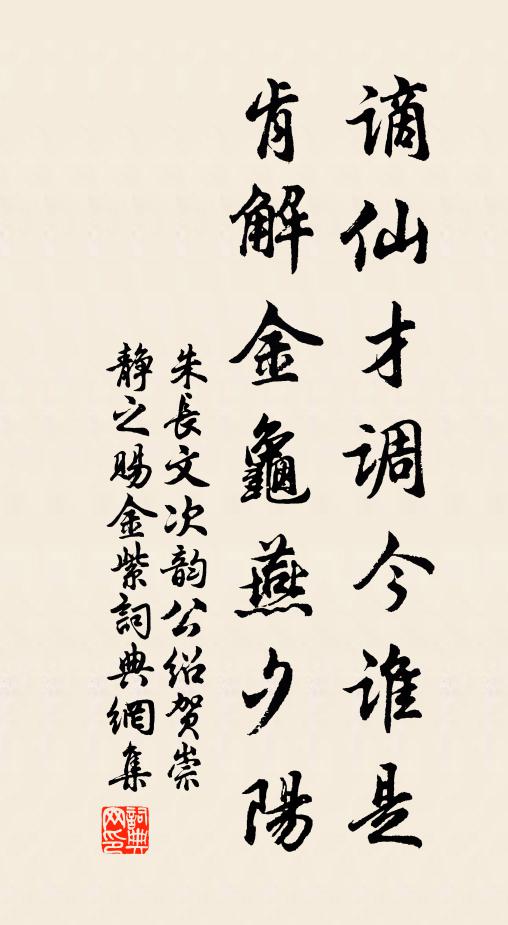 谪仙才调今谁是
肯解金龜燕夕陽
朱長文次韵公紹贺崇
静之賜金紫詞典網集
詞典網印